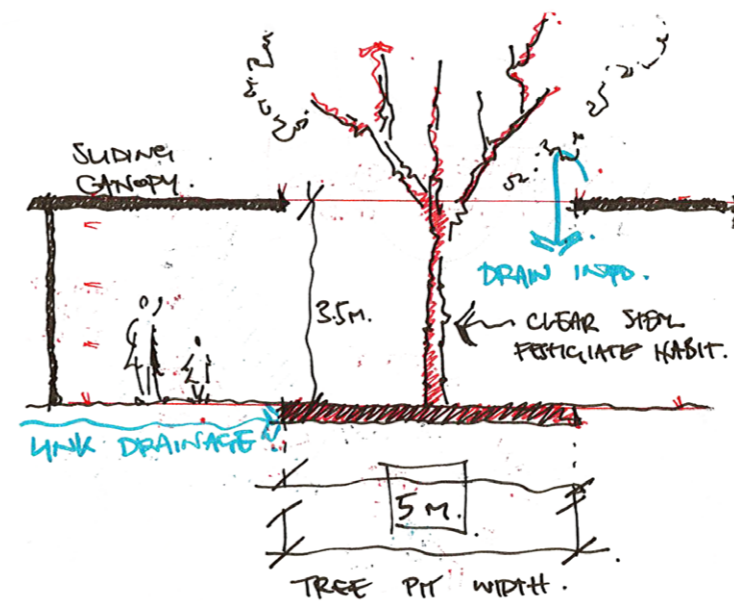 SLIDING
CANOPY.
3.5M.
DRAIN INTO.
CLEAR STEM
FESTIGIATE HABIT.
LINK DRAINAGE
5 M.
TREE PIT WIDTH.